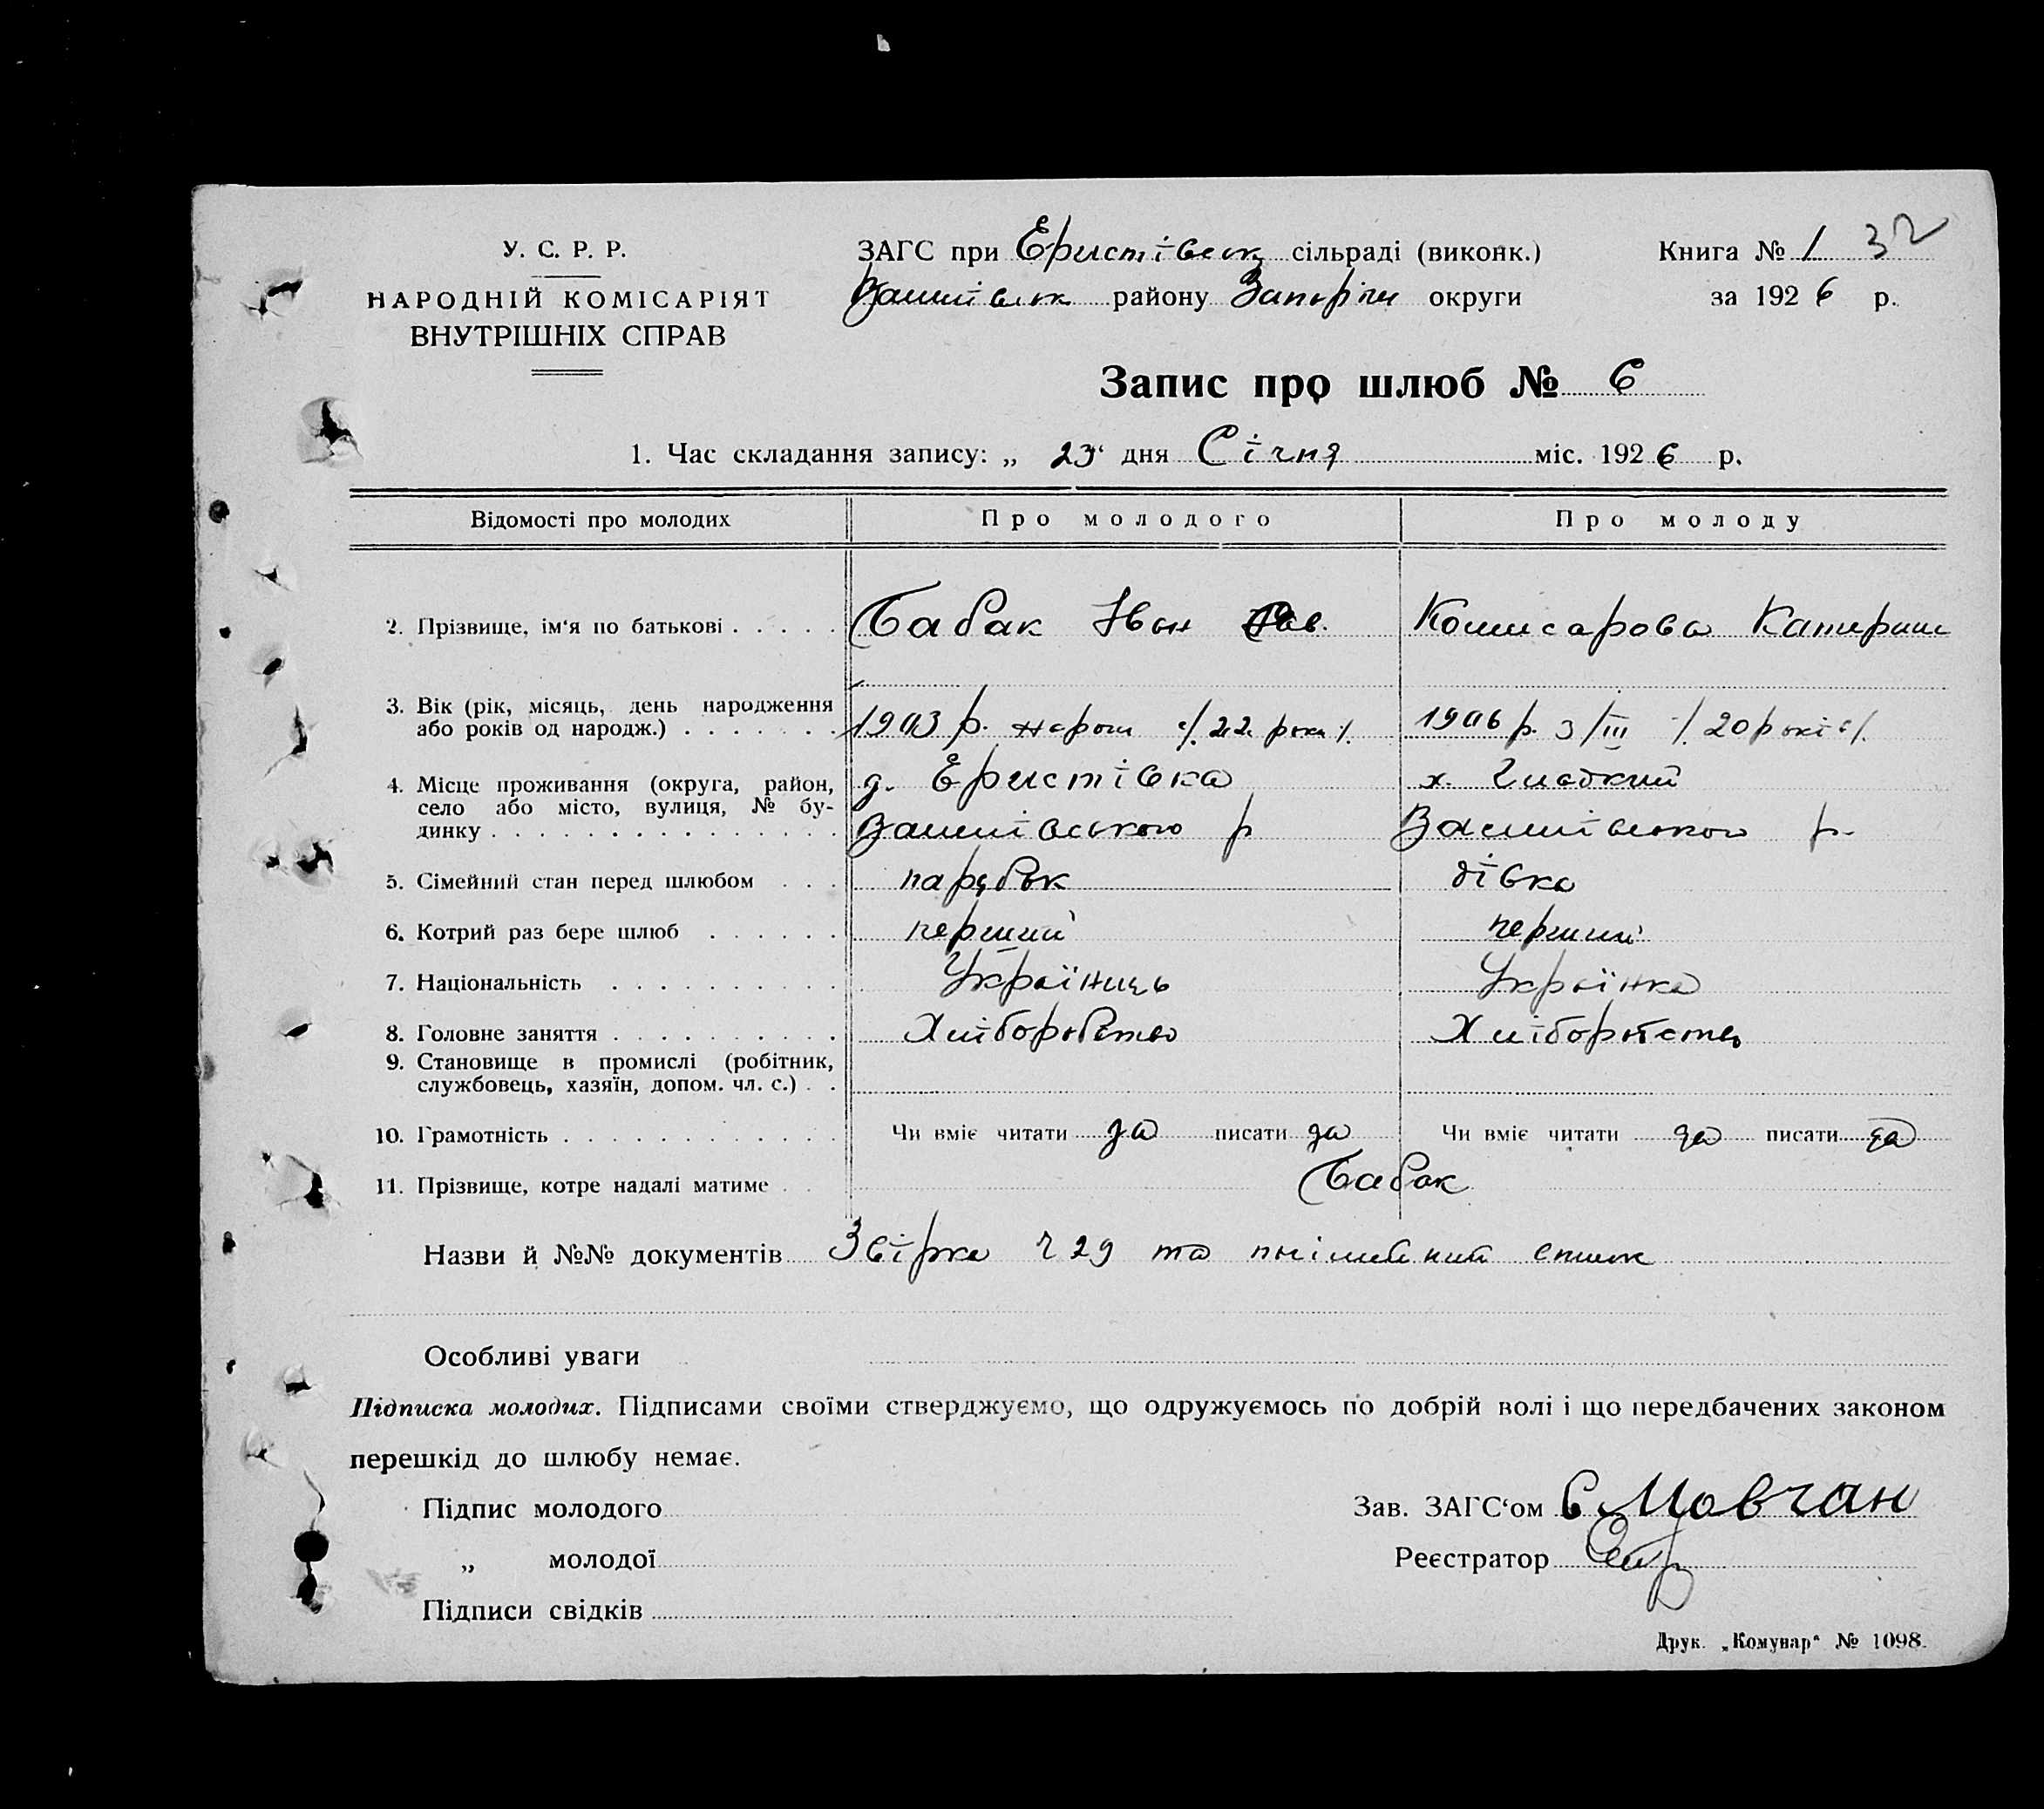 У. С. Р. Р.
НАРОДНІЙ КОМІСАРІЯТ
ВНУТРІШНІХ СПРАВ
ЗАГС при Еристівськ сільраді (виконк.)
району Запоріж округи
Книга № 1 32
за 1926 р.
Запис про шлюб № 6
1. Час складання запису: „ 23“ дня Січня міс. 1926 р.
Відомості про молодих Про молодого Про молоду
2. Прізвище, ім‘я по батькові Бабак Іван Комисарова Катерин
3. Вік (рік, місяць, день народження
або років од народж.) 1903 р. 22 роки 1906 р. 3/III 20 років
4. Місце проживання (округа, район,
село або місто, вулиця, № бу-
динку
д. Еристівка х.
р р.
5. Сімейний стан перед шлюбом парубок дівка
6. Котрий раз бере шлюб перший перший
7. Національність Українець Українка
8. Головне заняття Хліборобство Хліборобство
9. Становище в промислі (робітник,
службовець, хазяїн, допом. чл. с.)
10. Грамотність Чи вміє читати да писати да Чи вміє читати да писати да
11. Прізвище, котре надалі матиме Бабак
Назви й №№ документів Звірка ч 29 та посімейний список
Особливі уваги
Підписка молодих. Підписами своїми стверджуємо, що одружуємось по добрій волі і що передбачених законом
перешкід до шлюбу немає.
Підпис молодого
„ молодої
Підписи свідків
Зав. ЗАГС‘ом Мовчан
Реєстратор
Друк. „Комунар“ № 1098.